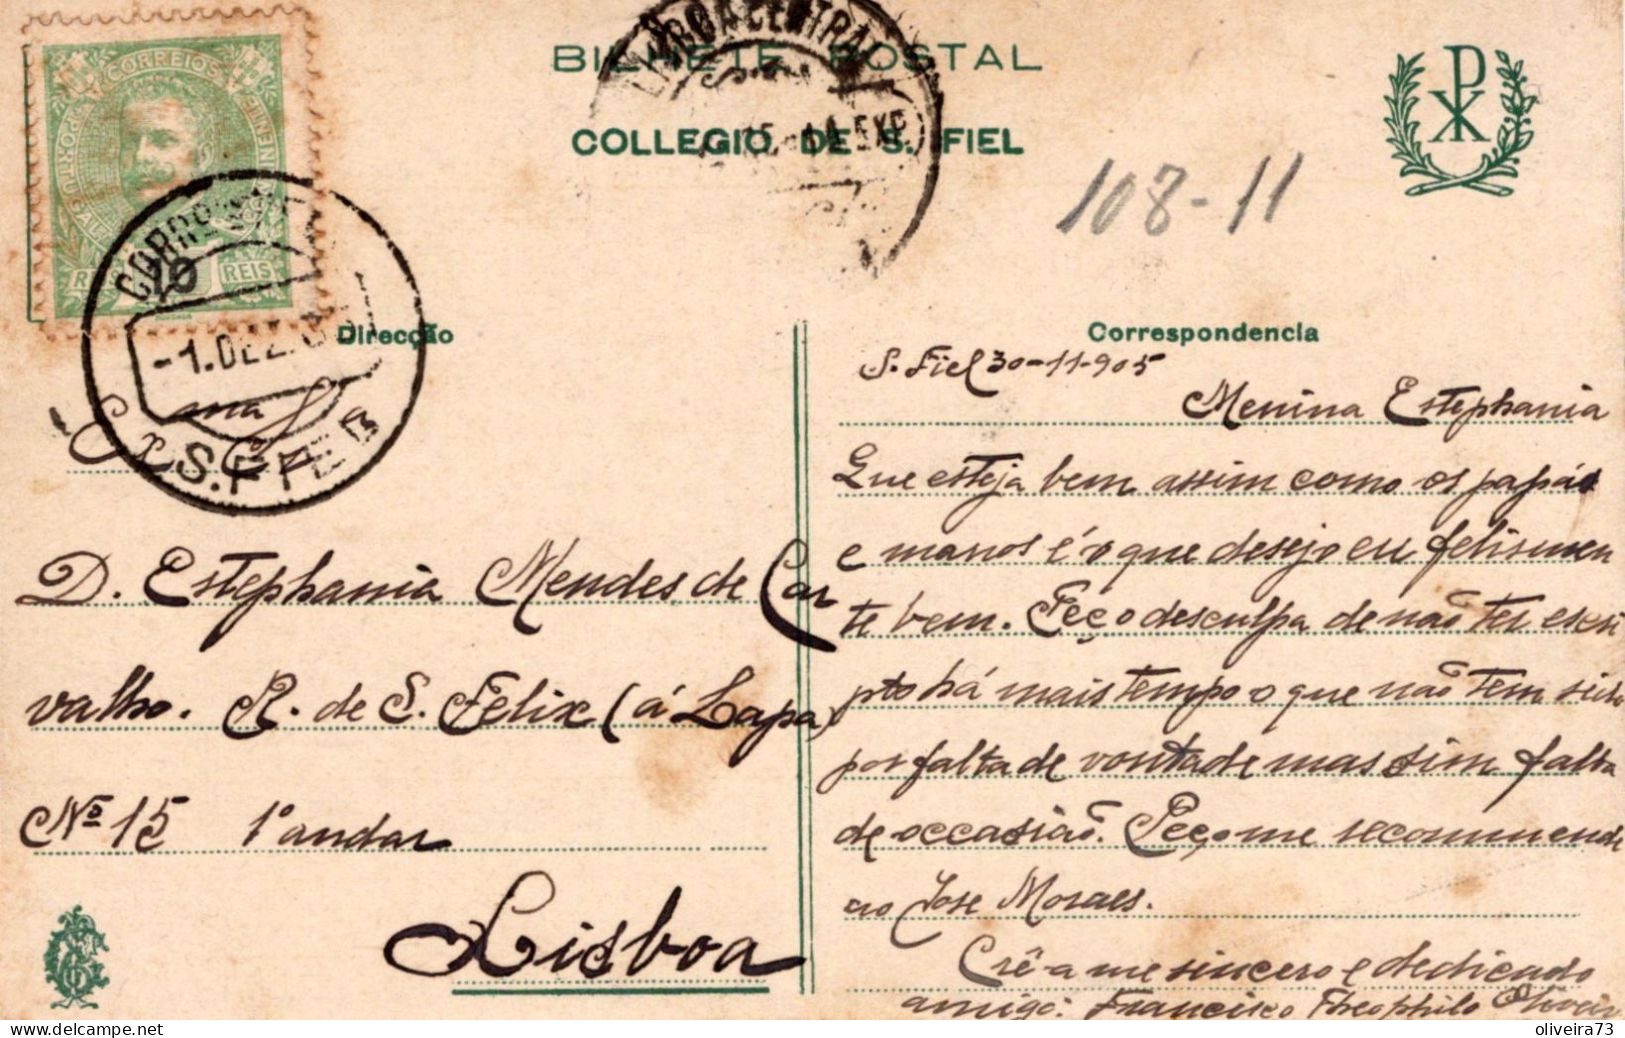 CORREIOS
PORTUGAL
REIS
BILHETE POSTAL
LISBOA CENTRAL
COLLEGIO DE S. FIEL
108-11
PX
Direcção
Correspondencia
-1.DEZ.
S. FIEL
Exma
D. Estephania Mendes de Car
valho. R. de S. Felix (á Lapa)
Nº 15 1º andar
Lisboa
S. Fiel 30-11-905
Menina Estephania
Que esteja bem assim como os papás
e manos é o que desejo eu felismen
te bem. Peço desculpa de não ter escri
pto há mais tempo o que não tem sido
por falta de vontade mas sim falta
de occasião. Peço me recommende
ao Jose Moraes.
Crê-a me sincero e dedicado
amigo: Francisco Theophilo Oliveir
oliveira73